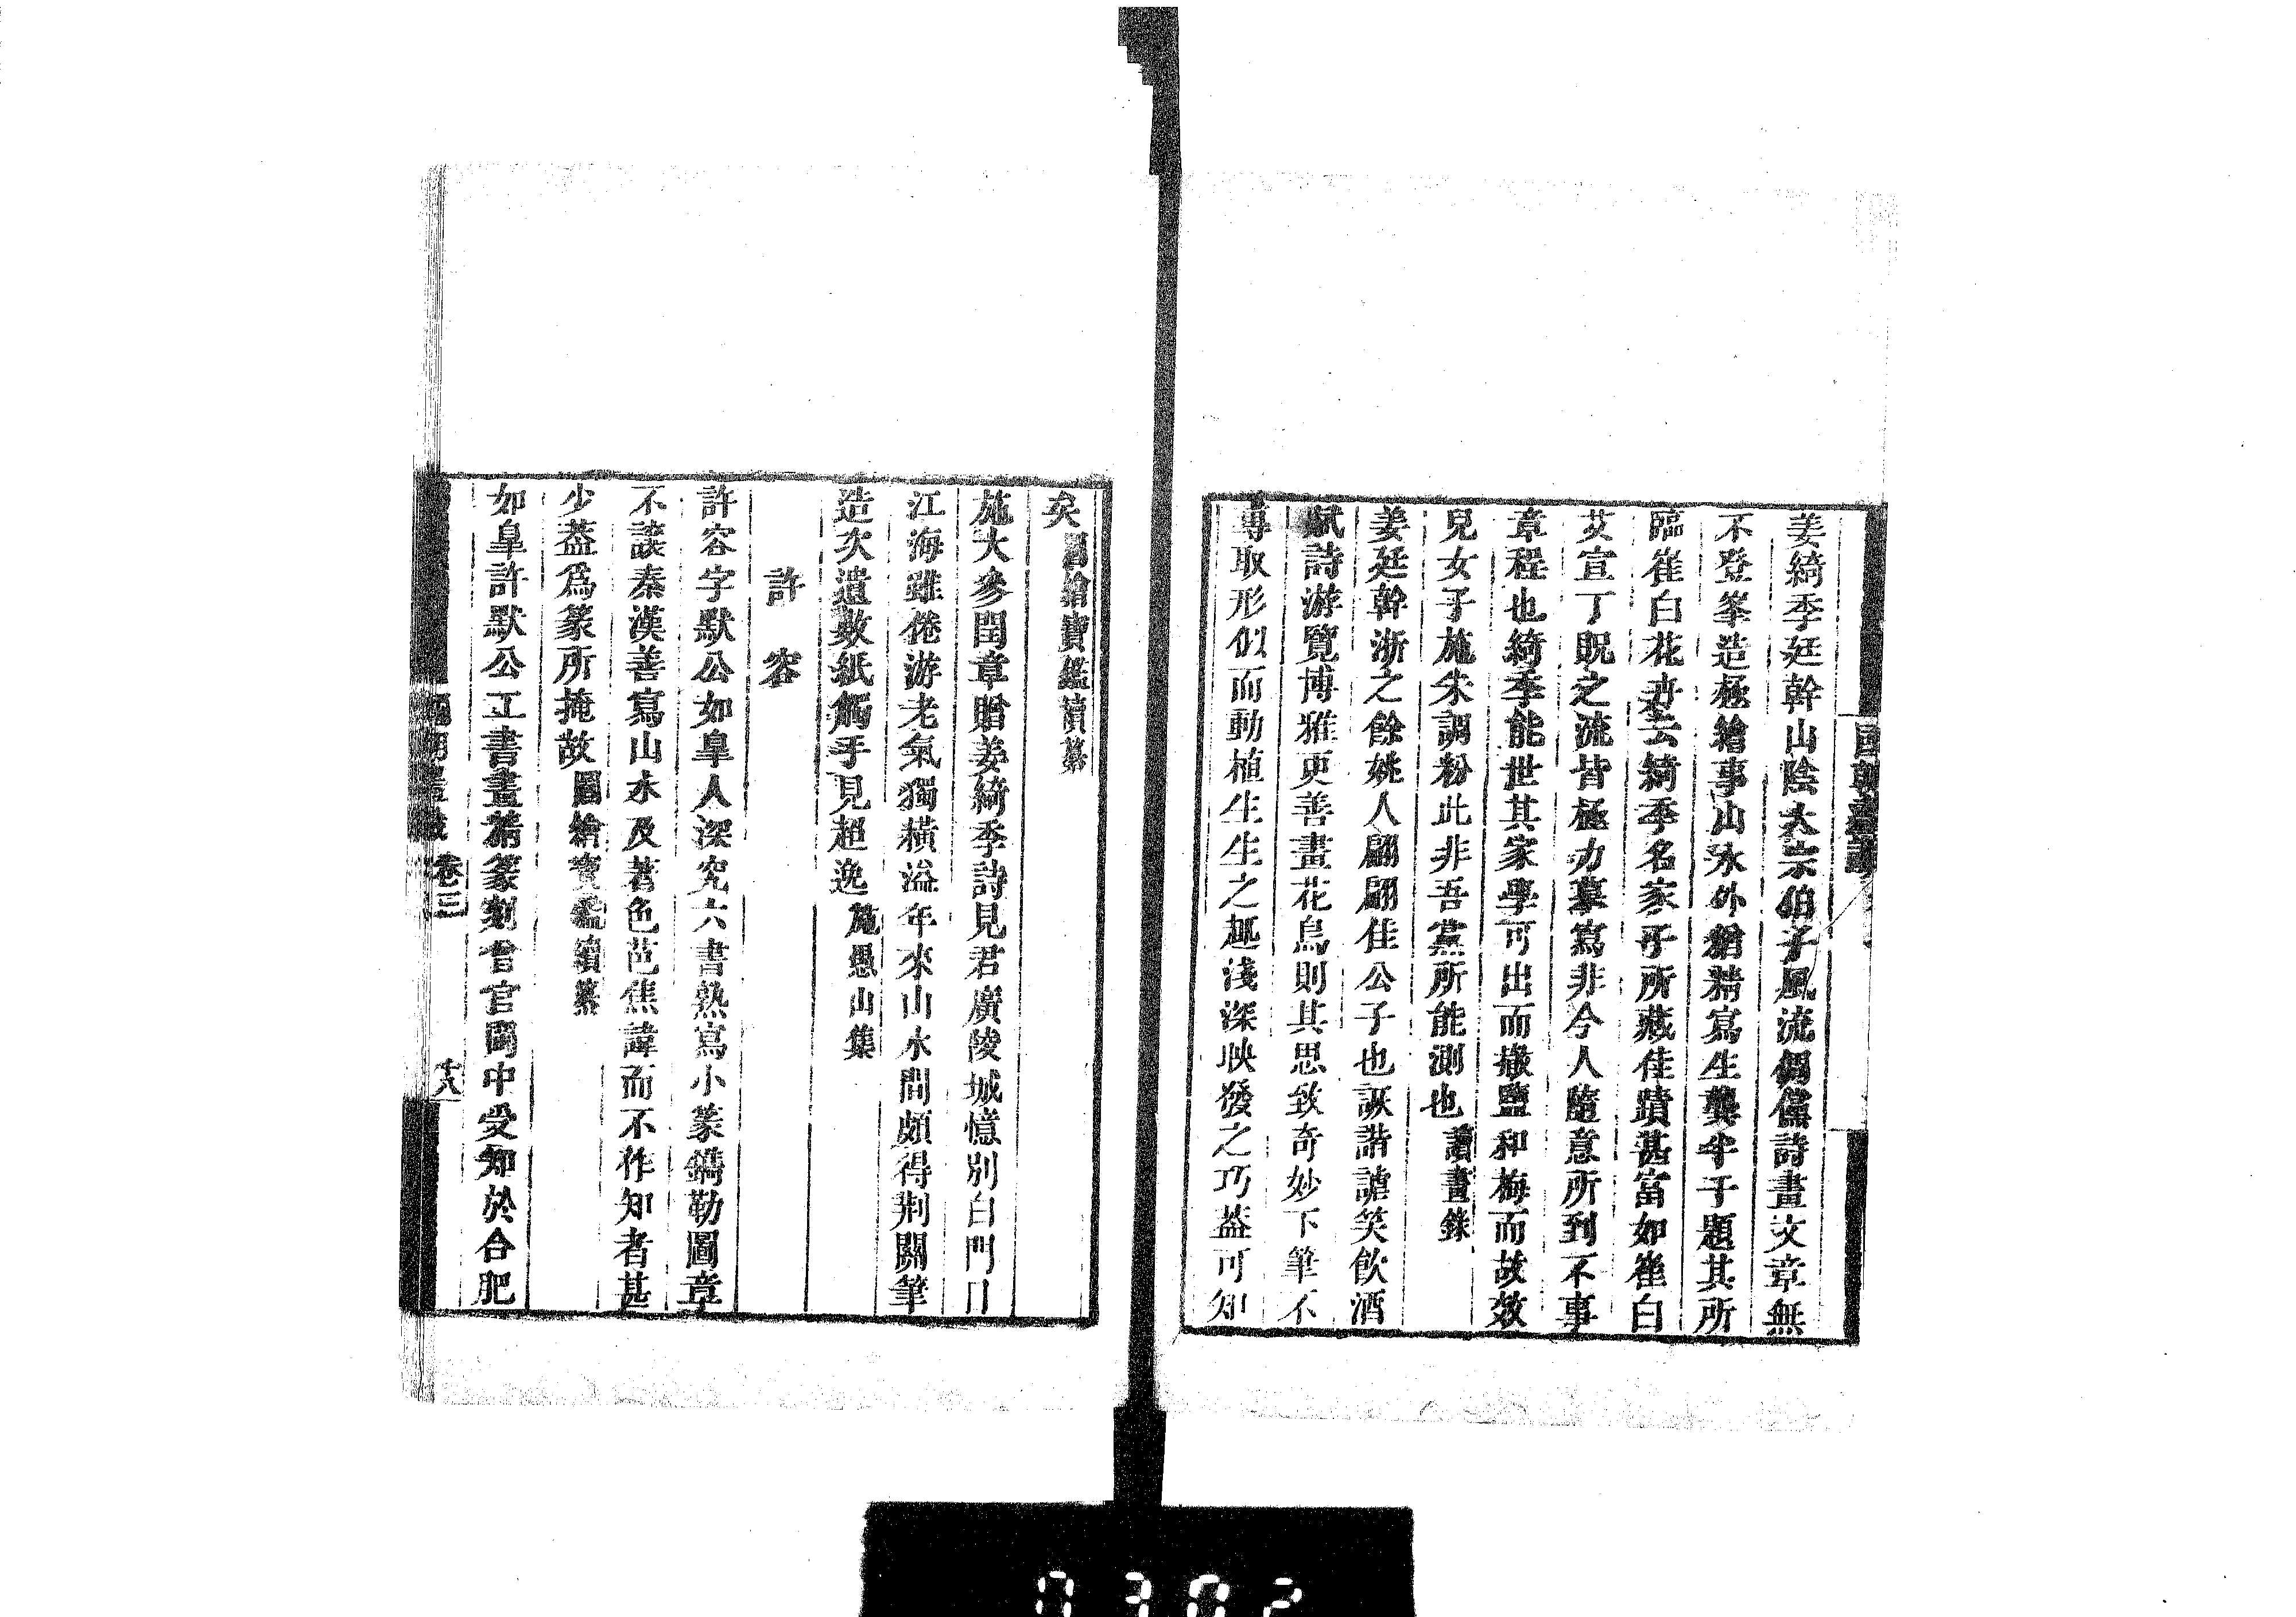 國朝畫識
姜綺季廷幹山陰大宗伯子風流倜儻詩畫文章無
不登峯造極繪事山水外猶精寫生龔半千題其所
臨崔白花卉云綺季名家子所藏佳蹟甚富如崔白
艾宣丁貺之流皆極力摹寫非今人隨意所到不事
章程也綺季能世其家學可出而撤鹽和梅而故效
兒女子施朱調粉此非吾黨所能測也讀畫錄
姜廷幹浙之餘姚人翩翩佳公子也詼諧謔笑飲酒
賦詩游覽博雅更善畫花鳥則其思致奇妙下筆不
專取形似而動植生生之趣淺深映發之巧葢可知
矣圖繪寶鑑續纂
施大參閏章贈姜綺季詩見君廣陵城憶別白門口
江海雖倦游老氣獨橫溢年來山水間頗得荆關筆
造次遺數紙觸手見超逸施愚山集
許容
許容字默公如皐人深究六書熟寫小篆鐫勒圖章
不談秦漢善寫山水及著色芭焦諱而不作知者甚
少葢爲篆所掩故圖繪寶鑑續纂
如皐許默公工書畫精篆刻嘗官閩中受知於合肥
國朝畫識 卷三 十八
0302